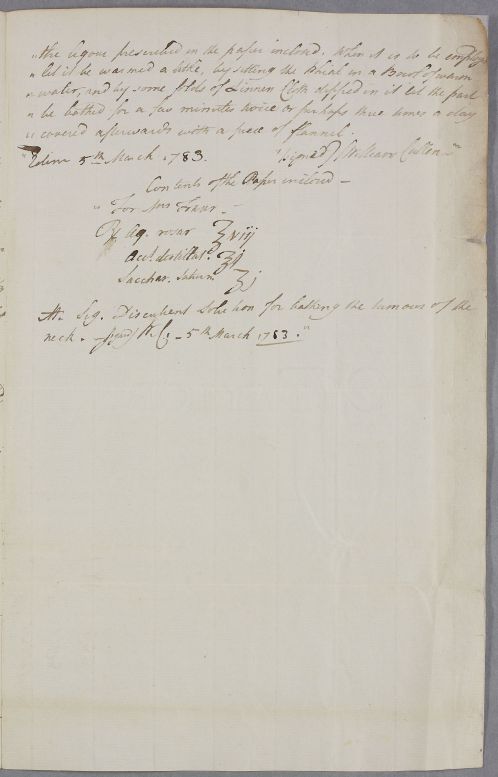 "the liquor prescribed in the paper inclosed. When it is to be employ
" let it be warmed a little, by setting the Phial in a Bowl of warm
" water, and by some folds of Linnen Cloth dipped in it let the part
" be bathed for a few minutes twice or perhaps three times a day
" covered afterwards with a piece of flannel.
"Edinr 5th March 1783. (signed) William Cullen"
Contents of the Paper inclosed –
" For Mrs
℞ Aq. rosar ℥viij
Acet. destillat. ℥j
Sacchar. Saturn. ʒj
M. Sig. Discutient Solution for bathing the tumour of the
neck. – signd W. C. – 5th March 1783."